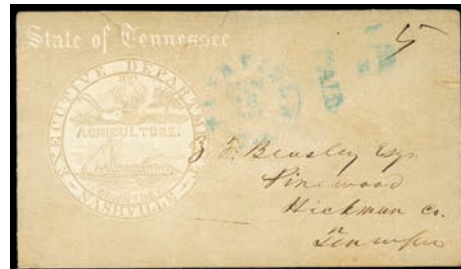 State of Tennessee
5
PAID
EXECUTIVE DEPARTMENT
AGRICULTURE.
COMMERCE
NASHVILLE
F. Beasley Esqr
Pinewood
Hickman Co.
Tennessee